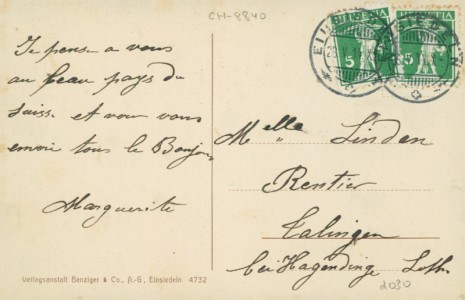 CH-8840
HELVETIA
HELVETIA
5
5
Je pense a vous
au beau pays du
Suisse et vour vous
envoie tous le Bonjour
Marguerite
Melle Linden
Rentier
Talingen
bei Hagendinge Loth.
Verlagsanstalt Benziger & Co., A.-G., Einsiedeln 4732
2030